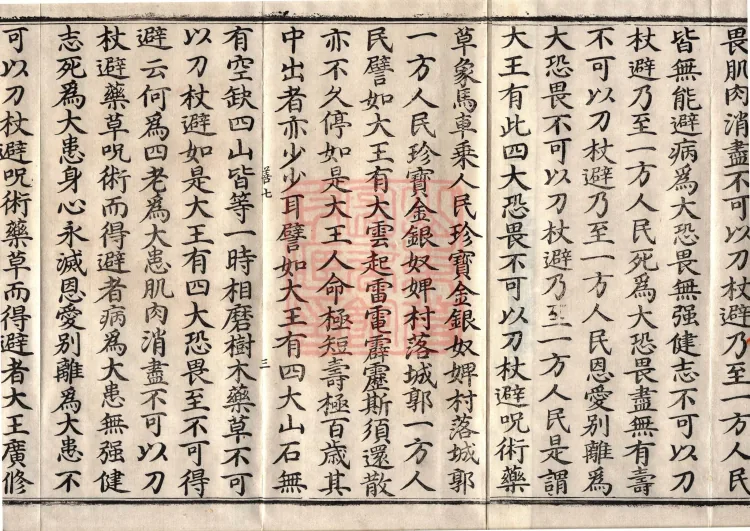 畏肌肉消盡不可以刀杖避乃至一方人民
皆無能避病為大恐畏無强健志不可以刀
杖避乃至一方人民死為大恐畏盡無有壽
不可以刀杖避乃至一方人民恩愛別離為
大恐畏不可以刀杖避乃至一方人民是謂
大王有此四大恐畏不可以刀杖避呪術藥
草象馬車乘人民珍寶金銀奴婢村落城郭
一方人民珍寶金銀奴婢村落城郭一方人
民譬如大王有大雲起雷電霹靂斯須還散
亦不久停如是大王人命極短壽極百歲其
中出者亦少少耳譬如大王有四大山石無
七 三
有空缺四山皆等一時相磨樹木藥草不可
以刀杖避如是大王有四大恐畏至不可得
避云何為四老為大患肌肉消盡不可以刀
杖避藥草呪術而得避者病為大患無强健
志死為大患身心永滅恩愛別離為大患不
可以刀杖避呪術藥草而得避者大王廣修